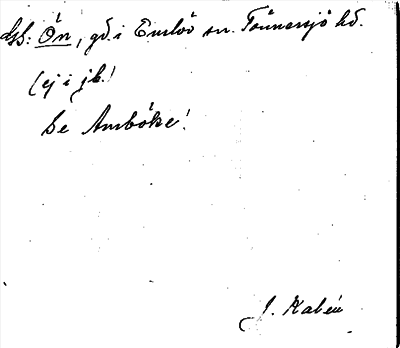 Gd: Ön, gd. i Enslöv sn. Tönnersjö hd.
(ej i jb.!
Se Amböke!
J. Kalén